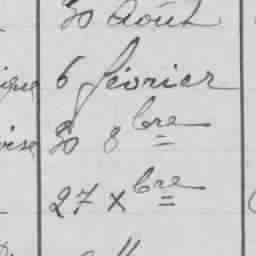 30 Août
6 février
30 8bre
27 Xbre